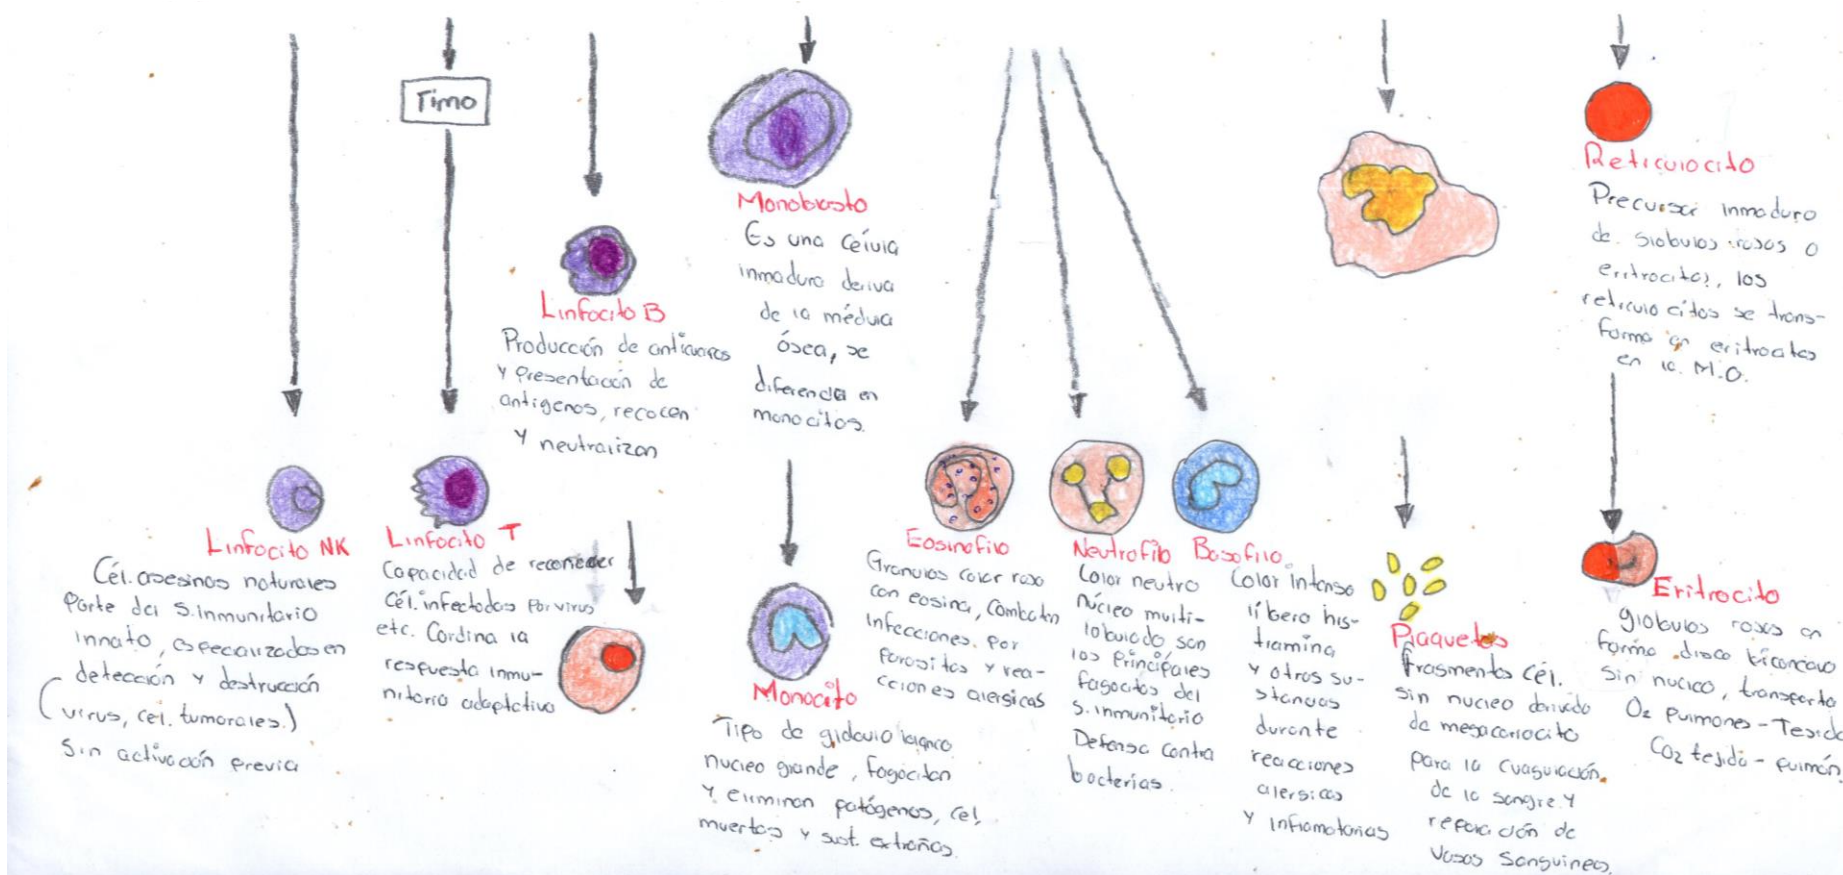 Timo
Linfocito NK
Cél. asesinas naturales
Parte del S. inmunitario
innato, especializadas en
detección y destrucción
(virus, cel. tumorales.)
Sin activación previa
Linfocito T
Capacidad de reconocer
Cél. infectadas por virus
etc. Cordina la
respuesta inmu-
nitaria adaptativa
Linfocito B
Producción de anticuerpos
y Presentación de
antígenos, recocen
y neutralizan
Monoblasto
Es una célula
inmadura deriva
de la médula
ósea, se
diferencia en
monocitos.
Monocito
Tipo de glóbulo blanco
nucleo grande, fagocitan
y eliminan patógenos, cel.
muertas y sust. extrañas.
Eosinofilo
Granulos color rosa
con eosina, combaten
infecciones por
parasitos y rea-
cciones alergicas
Neutrofilo
Color neutro
núcleo multi-
lobulado, son
los principales
fagocitos del
S. inmunitario
Defensa contra
bacterias.
Basofilo
Color intenso
libera his-
tramina
y otras su-
stancias
durante
reacciones
alergicas
y inflamatorias
Plaquetas
fragmento cél.
sin nucleo derivado
de megacariocito
para la cuagulación
de la sangre y
reparación de
vasos sanguineos.
Reticulocito
Precursor inmaduro
de globulos rojos o
eritrocitos, los
reticulo citos se trans-
forma en eritrocitos
en la M.O.
Eritrocito
globulos rojos en
forma disco biconcavo
sin nucleo, transporta
O2 pulmones - Tejido
CO2 tejido - pulmón.